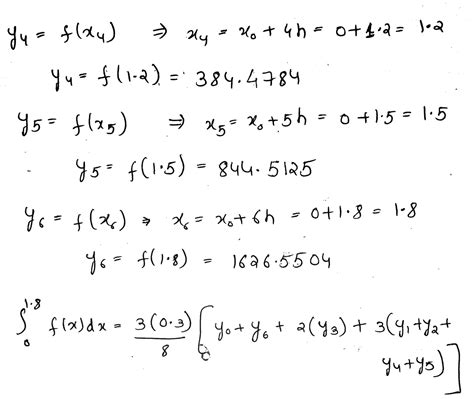 y₄ = f(x₄) ⇒ x₄ = x₀ + 4h = 0+1.2 = 1.2
y₄ = f(1.2) = 384.4784
y₅ = f(x₅) ⇒ x₅ = x₀+5h = 0+1.5 = 1.5
y₅ = f(1.5) = 844.5125
y₆ = f(x₆) ⇒ x₆ = x₀+6h = 0+1.8 = 1.8
y₆ = f(1.8) = 1626.5504
∫₀^1.8 f(x)dx = 3(0.3)/8 [y₀+y₆ + 2(y₃) + 3(y₁+y₂+
y₄+y₅)]